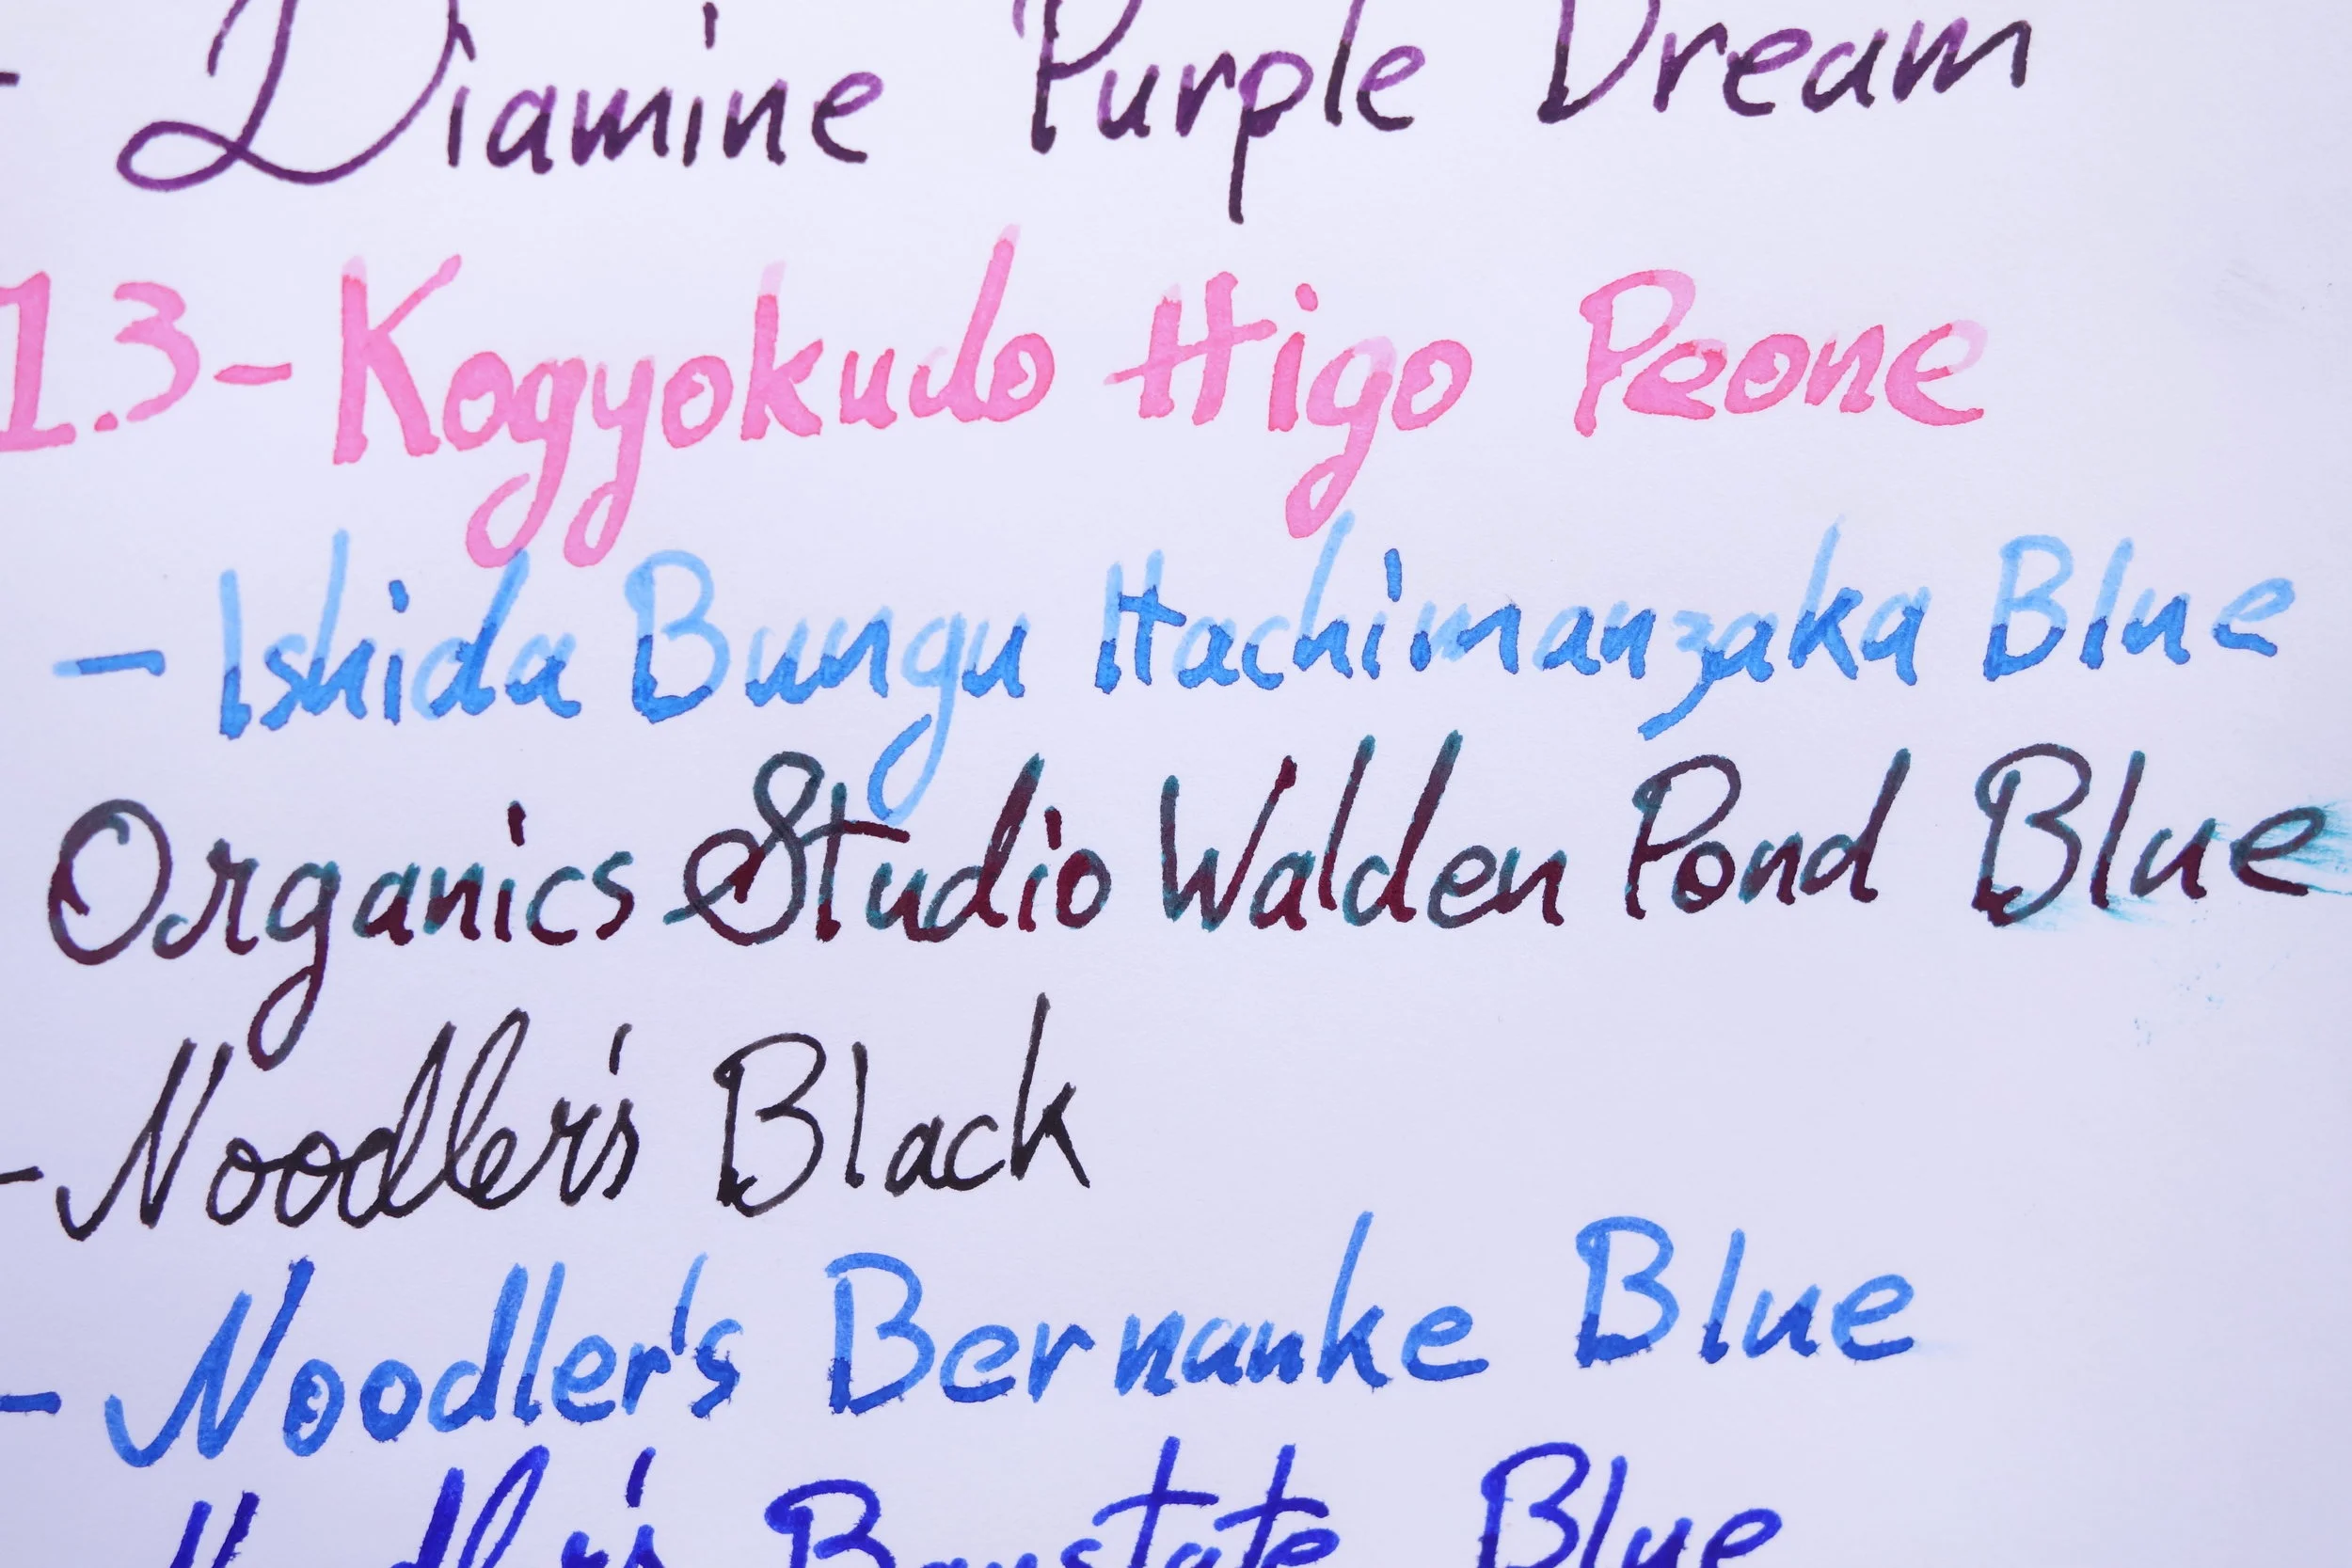 - Diamine Purple Dream
1.3 - Kogyokudo Higo Peone
- Ishida Bungu Hachimanzaka Blue
Organics Studio Walden Pond Blue
- Noodler's Black
- Noodler's Bernanke Blue
Noodler's Baystate Blue